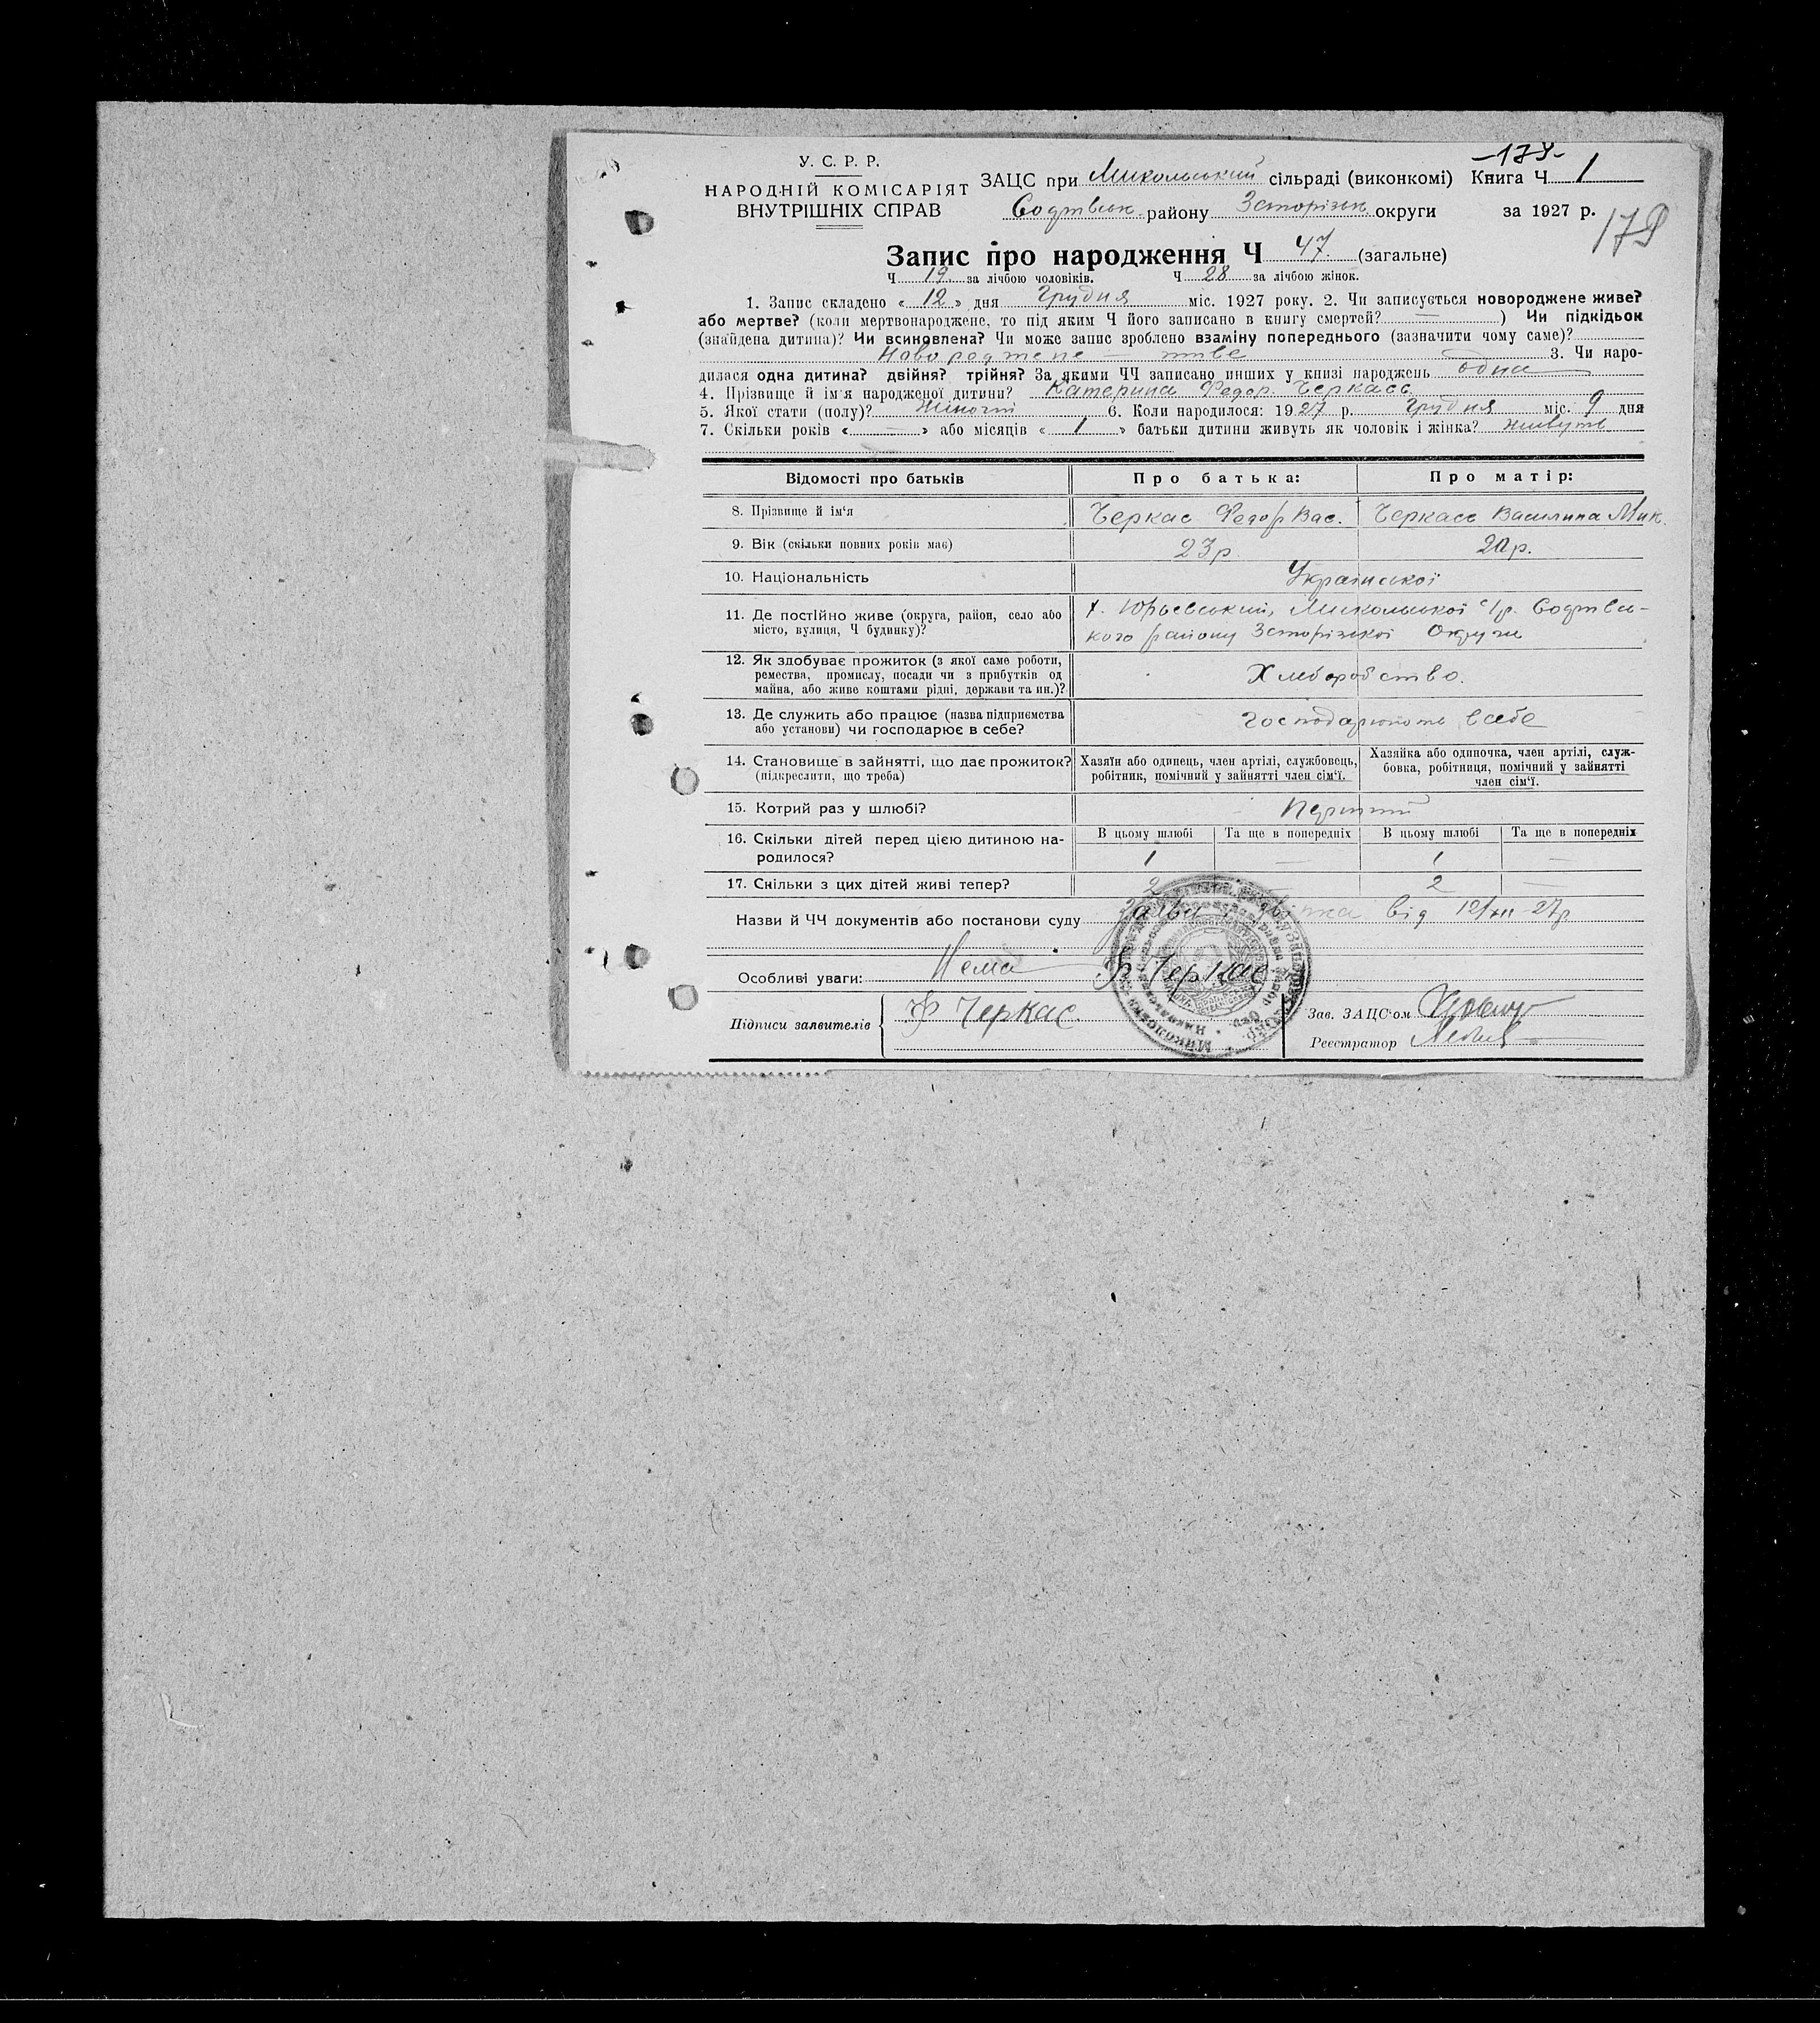 -179-
У. С. Р. Р.
НАРОДНІЙ КОМІСАРІЯТ
ВНУТРІШНІХ СПРАВ
ЗАЦС при Микольський сільраді (виконкомі) Книга Ч 1
району округи за 1927 р.
179
Запис про народження Ч 47. (загальне)
Ч 19 за лічбою чоловіків. Ч 28 за лічбою жінок.
1. Запис складено « 12 » дня Грудня міс. 1927 року. 2. Чи записується новороджене живе?
або мертве? (коли мертвонароджене, то під яким Ч його записано в книгу смертей? — ) Чи підкідьок
(знайдена дитина)? Чи всиновлена? Чи може запис зроблено взаміну попереднього (зазначити чому саме)?
Новороджене — живе 3. Чи наро-
дилася одна дитина? двійня? трійня? За якими ЧЧ записано инших у книзі народжень одна
4. Прізвище й ім'я народженої дитини? Катерина Федор. Черкась
5. Якої стати (полу)? Жіночої 6. Коли народилося: 1927 р. Грудня міс. 9 дня
7. Скільки років « — » або місяців « 1 » батьки дитини живуть як чоловік і жінка? живуть
Відомості про батьків Про батька: Про матір:
8. Прізвище й ім'я Черкас Федор Вас. Черкасс Василина Мик.
9. Вік (скільки повних років має) 23 р. 20 р.
10. Національність Української
11. Де постійно живе (округа, район, село або
місто, вулиця, Ч будинку)?
х. Юрьевський, Микольської с/р.
кого району Округи
12. Як здобуває прожиток (з якої саме роботи,
ремества, промислу, посади чи з прибутків од
майна, або живе коштами рідні, держави та ин.)?
Хліборобство.
13. Де служить або працює (назва підприємства
або установи) чи господарює в себе?
господарюють в себе
14. Становище в зайнятті, що дає прожиток?
(підкреслити, що треба)
Хазяїн або одинець, член артілі, службовець,
робітник, помічний у зайнятті член сім'ї.
Хазяйка або одиночка, член артілі, служ-
бовка, робітниця, помічний у зайнятті
член сім'ї.
15. Котрий раз у шлюбі? Перший
16. Скільки дітей перед цією дитиною на-
родилося?
В цьому шлюбі Та ще в попередніх В цьому шлюбі Та ще в попередніх
1 — 1 —
17. Скільки з цих дітей живі тепер? 2 — 2 —
Назви й ЧЧ документів або постанови суду від 12/XII-27р
Особливі уваги: Нема Ф Черкас
Підписи заявителів Ф Черкас
Зав. ЗАЦС'ом
Реєстратор